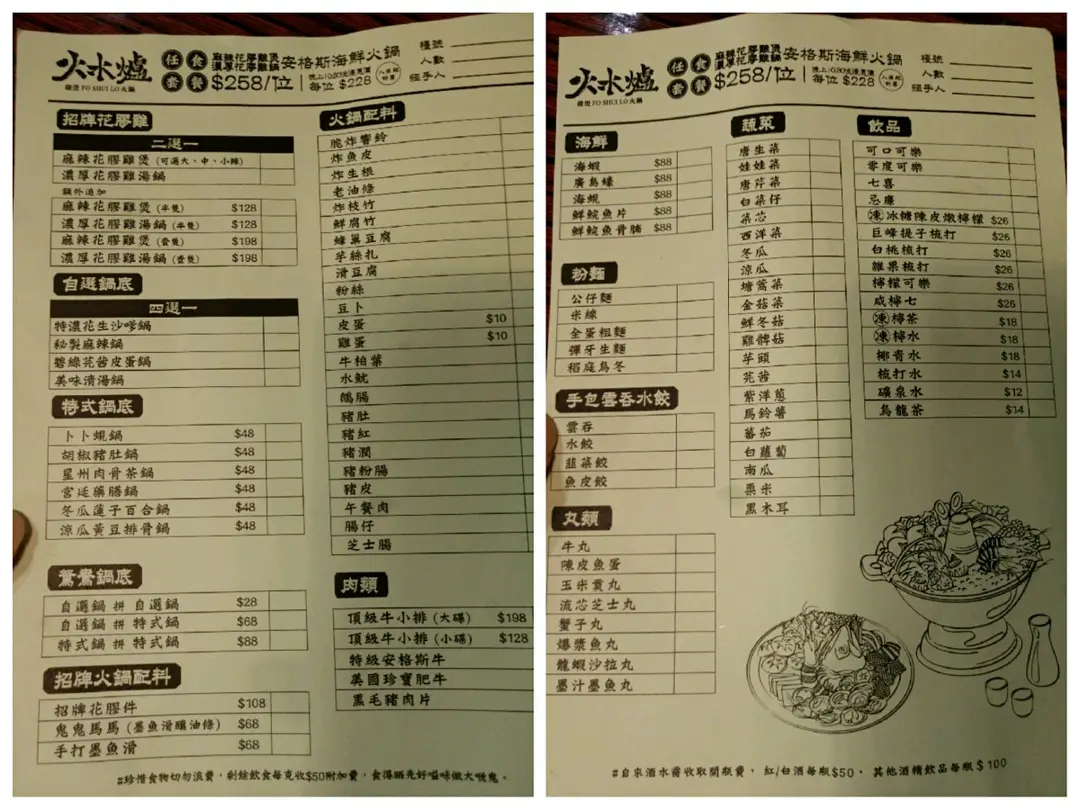 火水爐
雞煲 FO SHUI LO 火鍋
任食套餐
麻辣花膠雞煲
濃厚花膠雞鍋
安格斯海鮮火鍋
$258/位
晚上10:30後優惠價
每位 $228
檯號
人數
經手人
招牌花膠雞
二選一
麻辣花膠雞煲 (可選大、中、小辣)
濃厚花膠雞湯鍋
額外追加
麻辣花膠雞煲 (半隻) $128
濃厚花膠雞湯鍋 (半隻) $128
麻辣花膠雞煲 (壹隻) $198
濃厚花膠雞湯鍋 (壹隻) $198
自選鍋底
四選一
特濃花生沙嗲鍋
秘製麻辣鍋
碧綠芫茜皮蛋鍋
美味清湯鍋
特式鍋底
卜卜蜆鍋 $48
胡椒豬肚鍋 $48
星州肉骨茶鍋 $48
宮廷藥膳鍋 $48
冬瓜蓮子百合鍋 $48
涼瓜黃豆排骨鍋 $48
鴛鴦鍋底
自選鍋 拼 自選鍋 $28
自選鍋 拼 特式鍋 $68
特式鍋 拼 特式鍋 $88
招牌火鍋配料
招牌花膠件 $108
鬼鬼馬馬 (墨魚滑釀油條) $68
手打墨魚滑 $68
火鍋配料
脆炸響鈴
炸魚皮
炸生根
老油條
炸枝竹
鮮腐竹
蜂巢豆腐
芋絲扎
滑豆腐
粉絲
豆卜
皮蛋 $10
雞蛋 $10
牛柏葉
水魷
鴨腸
豬肚
豬紅
豬潤
豬粉腸
豬皮
午餐肉
腸仔
芝士腸
肉類
頂級牛小排 (大碟) $198
頂級牛小排 (小碟) $128
特級安格斯牛
美國珍寶肥牛
黑毛豬肉片
#珍惜食物切勿浪費，剩餘飲食每克收$50附加費，食得晒先好嗌味做大喫鬼。
火水爐
雞煲 FO SHUI LO 火鍋
任食套餐
麻辣花膠雞煲
濃厚花膠雞鍋
安格斯海鮮火鍋
$258/位
晚上10:30後優惠價
每位 $228
檯號
人數
經手人
海鮮
海蝦 $88
廣島蠔 $88
海蜆 $88
鮮鯇魚片 $88
鮮鯇魚骨腩 $88
粉麵
公仔麵
米線
全蛋粗麵
彈牙生麵
稻庭烏冬
手包雲吞水餃
雲吞
水餃
韮菜餃
魚皮餃
丸類
牛丸
陳皮魚蛋
玉米貢丸
流芯芝士丸
蟹子丸
爆漿魚丸
龍蝦沙拉丸
墨汁墨魚丸
蔬菜
唐生菜
娃娃菜
唐芹菜
白菜仔
菜芯
西洋菜
冬瓜
涼瓜
塘蒿菜
金菇菜
鮮冬菇
雞髀菇
芋頭
芫茜
紫洋蔥
馬鈴薯
蕃茄
白蘿蔔
南瓜
粟米
黑木耳
飲品
可口可樂
零度可樂
七喜
忌廉
(凍)冰糖陳皮燉檸檬 $26
巨峰提子梳打 $26
白桃梳打 $26
雜果梳打 $26
檸檬可樂 $26
咸檸七 $26
(凍)檸茶 $18
(凍)檸水 $18
椰青水 $18
梳打水 $14
礦泉水 $12
烏龍茶 $14
#自來酒水需收取開瓶費， 紅/白酒每瓶$50， 其他酒精飲品每瓶$100